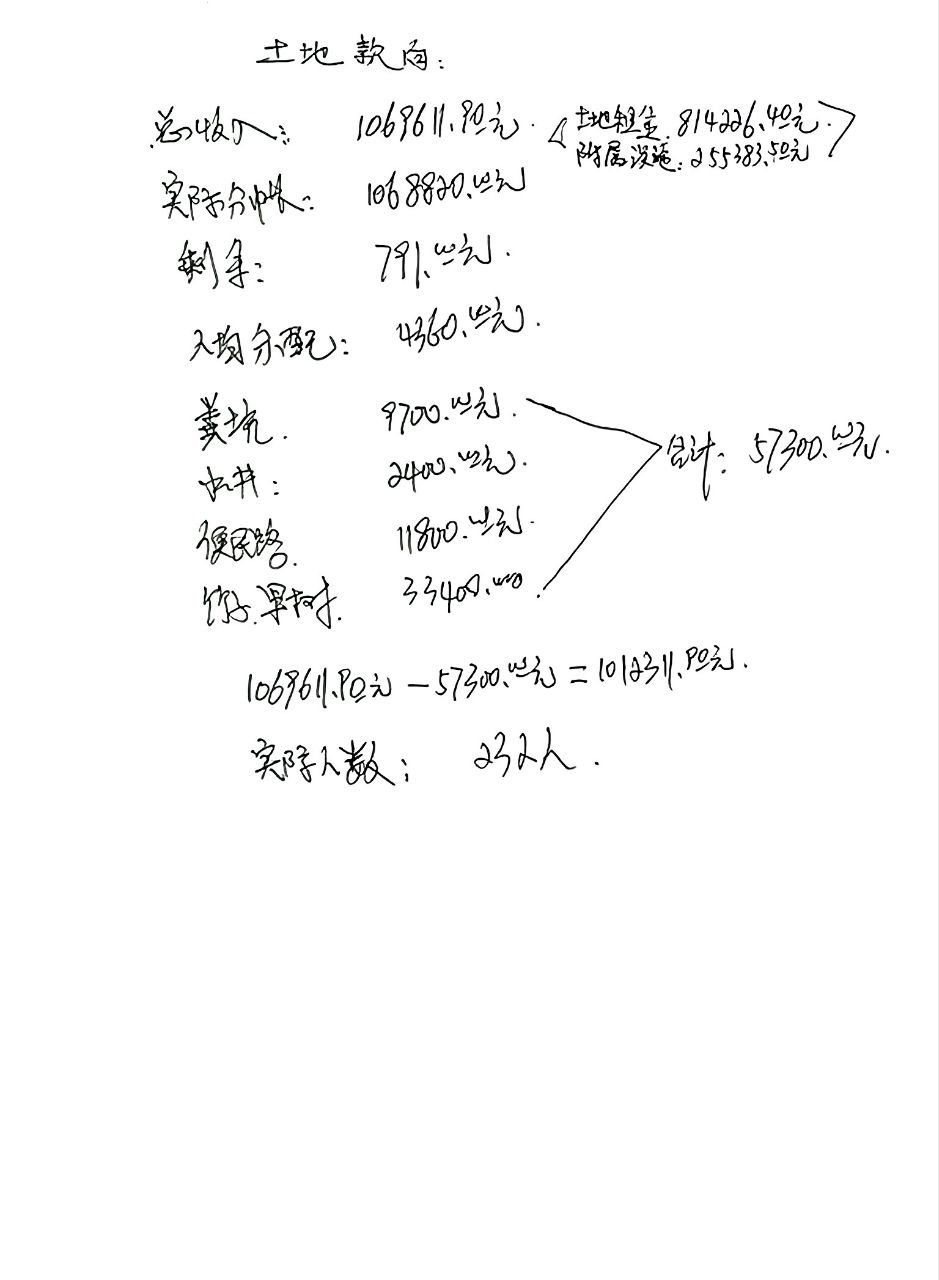 土地款
总收入: 1069611.90元. <土地租金. 814226.40元.
附属设施: 255383.50元>
实际分帐: 1068820.00元
剩余: 791.00元.
人均分配: 4360.00元.
粪坑. 9700.00元.
水井: 2400.00元.
便民路. 11800.00元.
竹子.果树. 33400.00 . 合计: 57300.00元.
1069611.90元-57300.00元=1012311.90元.
实际人数: 232人.